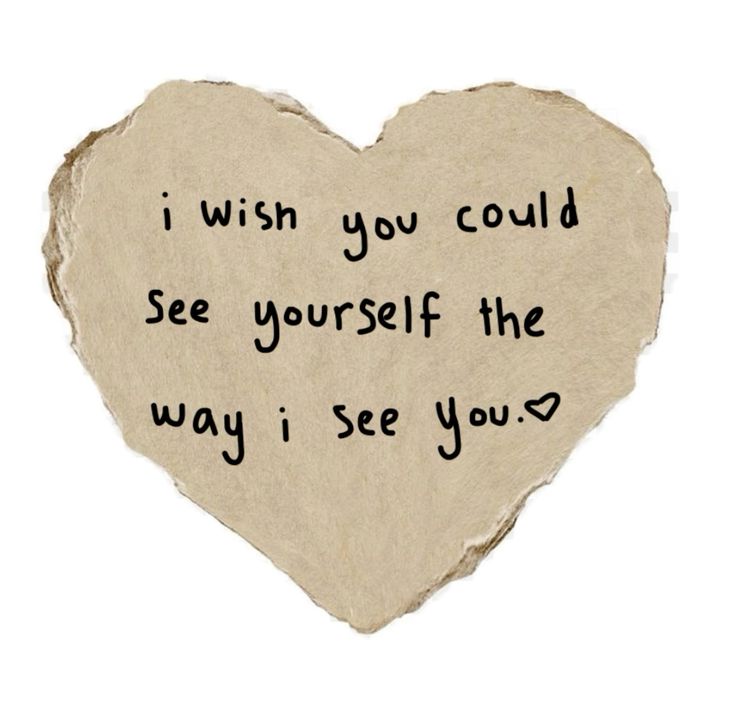 i wish you could
see yourself the
way i see you.♡